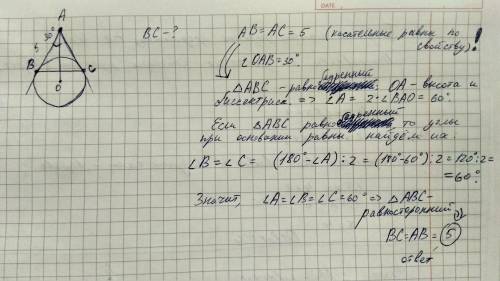 DATE
A
30°
5
B
C
O
BC-?
AB=AC=5 (касательные равны по
свойству)!
∠OAB=30°
△ABC - равнобедренный OA - высота и
биссектриса => ∠A = 2·∠BAO = 60°.
Если △ABC равнобедренный то углы
при основании равны найдём их.
∠B=∠C= (180°-∠A):2 = (180°-60°):2 = 120°:2=
=60°.
Значит, ∠A=∠B=∠C=60° => △ABC-
равносторонний
BC=AB=5
ответ